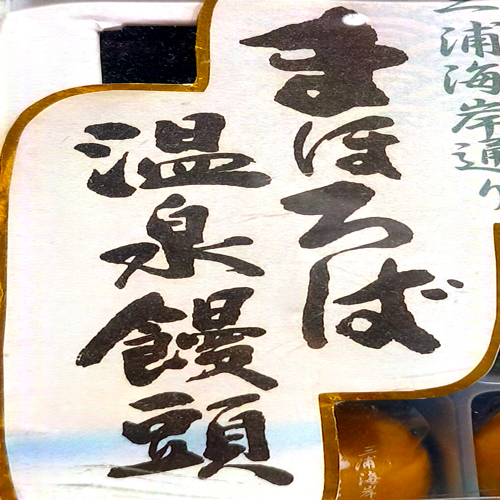 三浦海岸通り
まほろば
温泉饅頭
三浦海岸